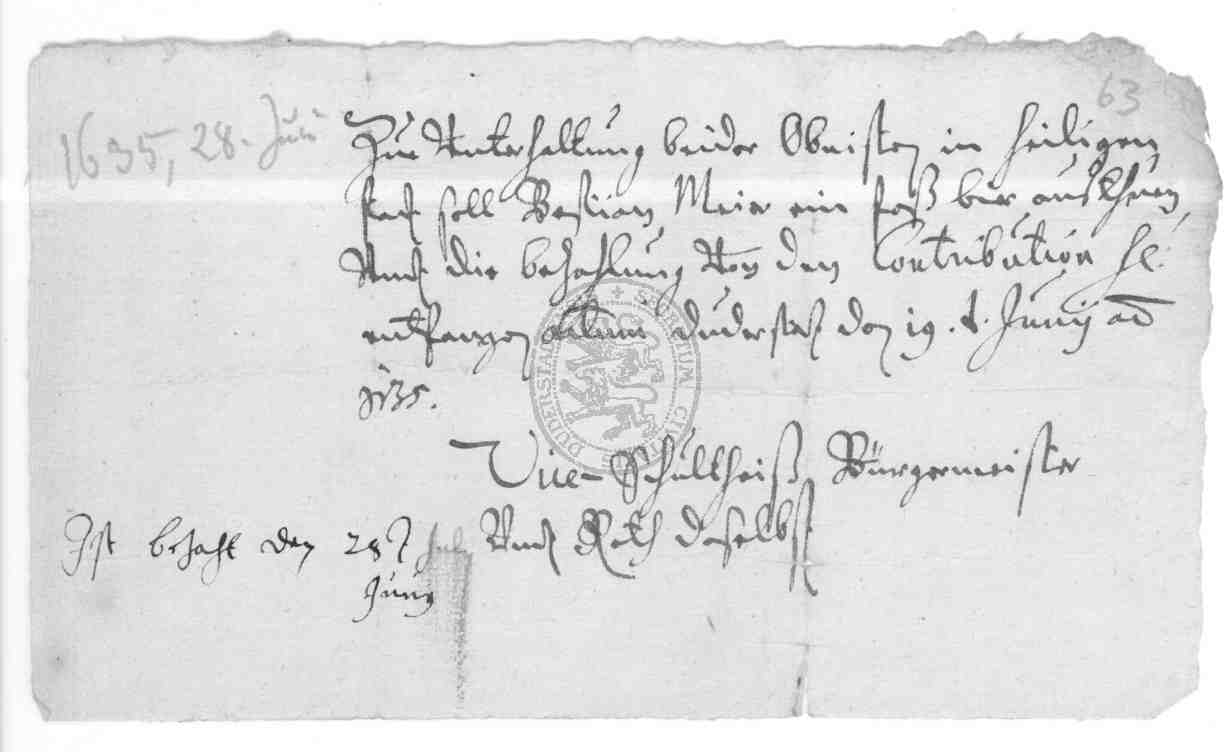 63
1635, 28. Juni
Zur Unterhaltung beider Obristen in Heiligen
stadt soll Bastian Meier ein faß bier
Undt die bezahlung Von den Contribution
entfangen Duderstadt den 19. t. Junij
1635.
Vice Schultheiß Bürgermeister
Undt Rath daselbst
Ist bezahlt den 28t
Junij
SIGILLUM DUDERSTAD